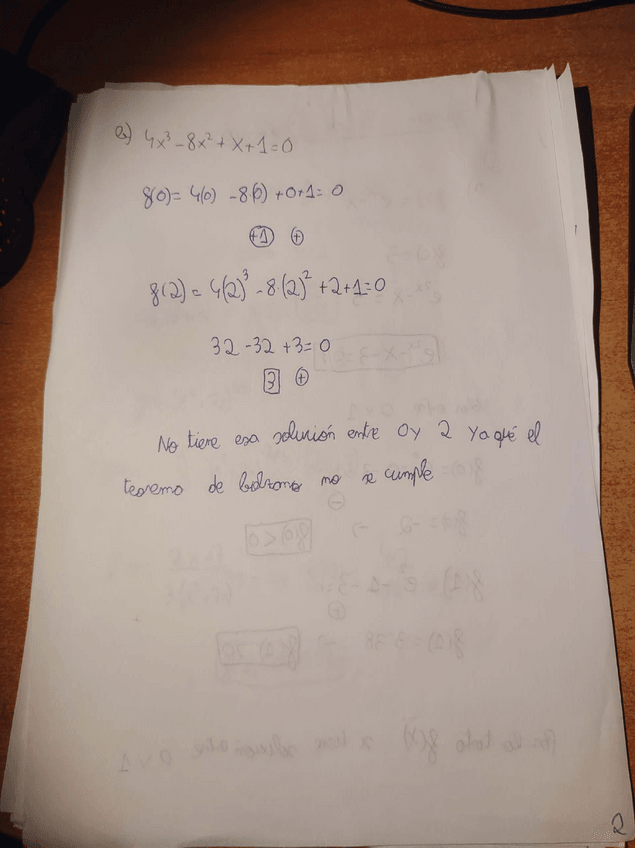 a) 4x³ - 8x² + x + 1 = 0
f(0) = 4(0) - 8·(0) + 0 + 1 = 0
+1 +
f(2) = 4(2)³ - 8·(2)² + 2 + 1 = 0
32 - 32 + 3 = 0
3 +
No tiene esa solución entre 0 y 2 ya qué el
teorema de bolzano no se cumple
2